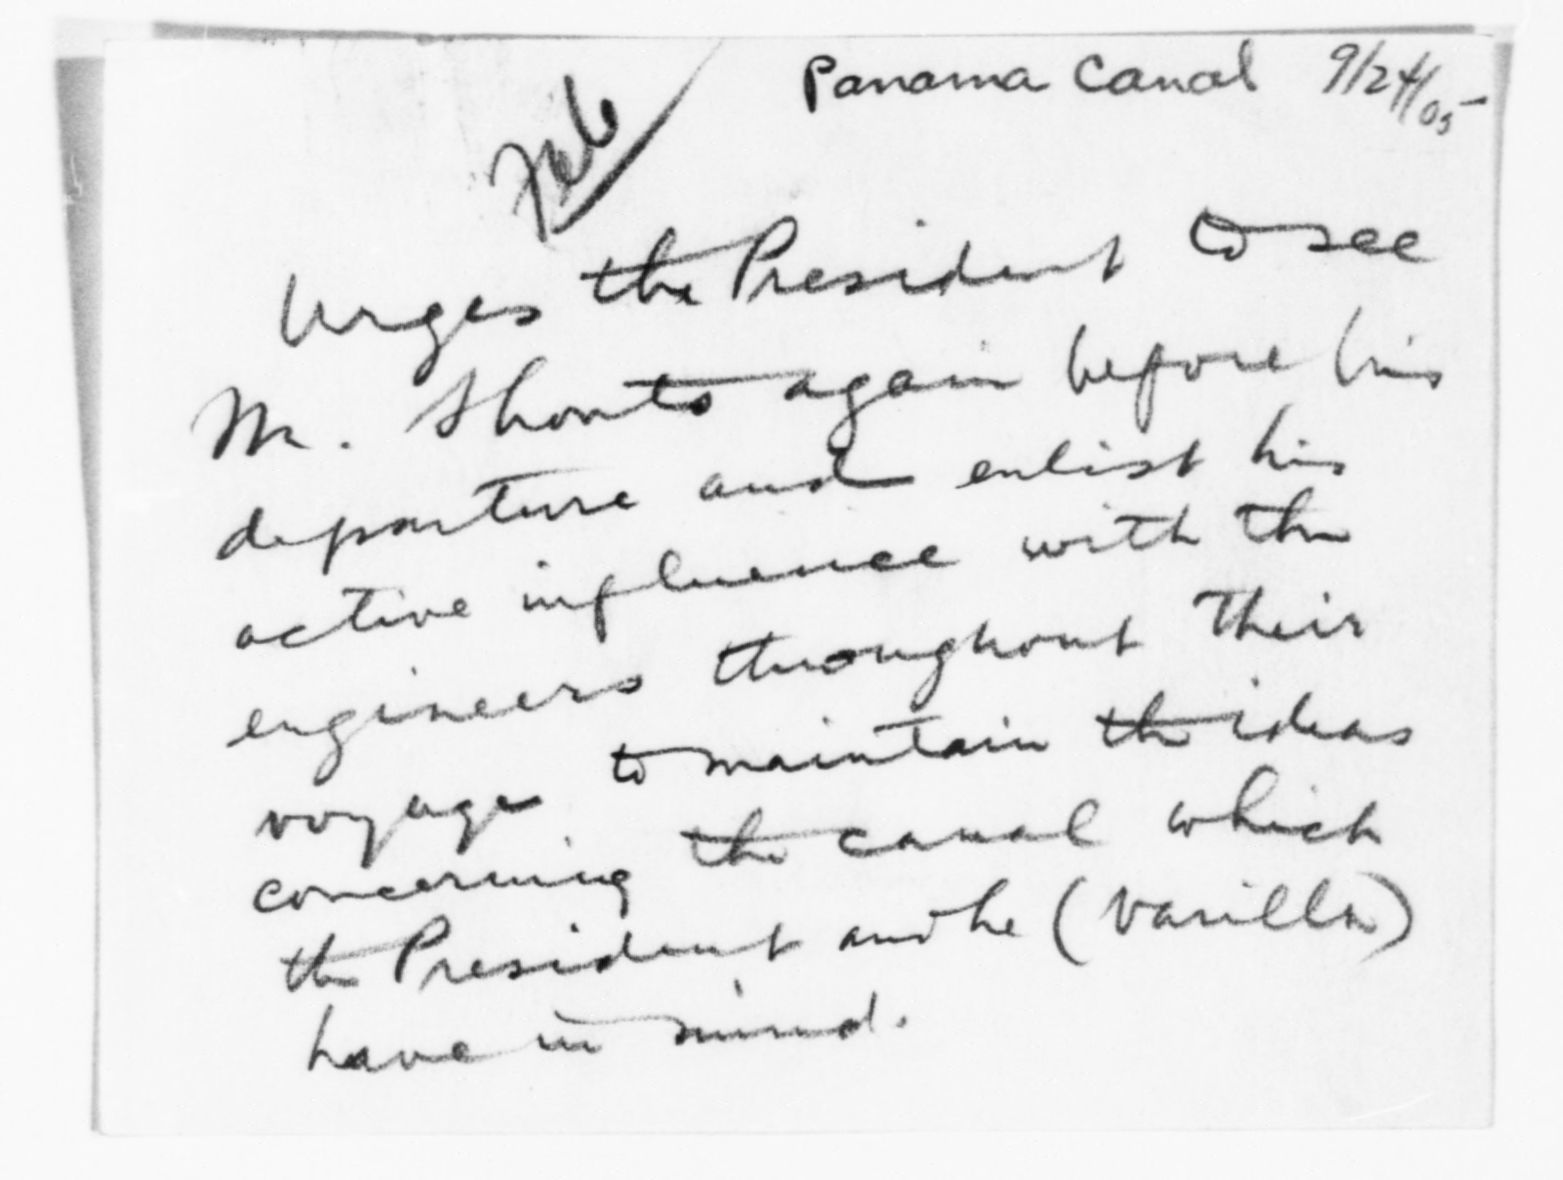 Panama Canal 9/24/05
File
Urges the President to see
Mr. Shonts again before his
departure and enlist his
active influence with the
engineers throughout their
voyage to maintain the ideas
concerning the canal which
the President and he (Varilla)
have in mind.